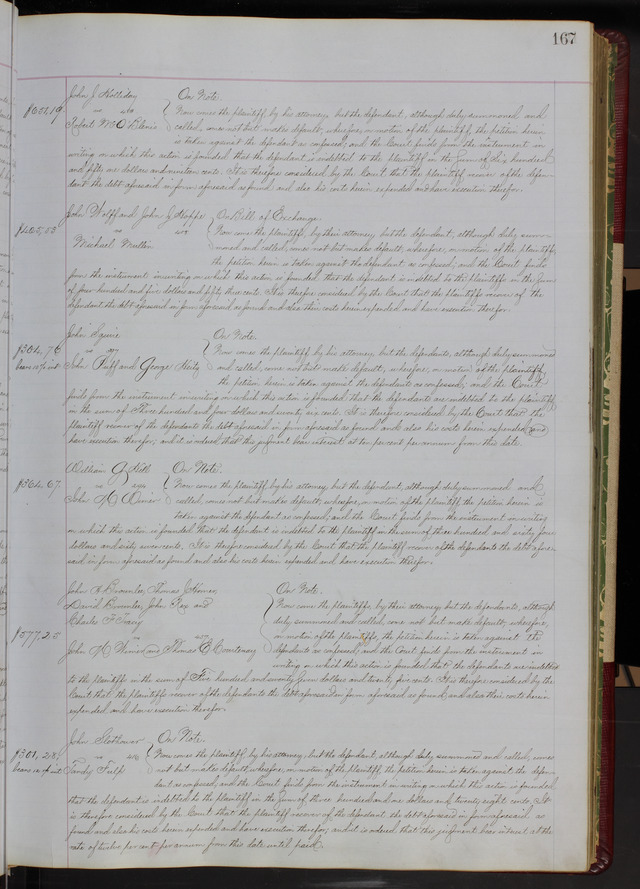 167
John J. Holliday On Note.
$651,19 vs
Now comes the plaintiff, by his attorney but the defendant, although duly summoned and
Robert M. O called, comes not but makes default; wherefore, on motion of the plaintiff, the petition herein
is taken against the defendant as confessed; and the Court finds from the instrument in
writing on which this action is founded that the defendant is indebted to the plaintiff in the sum of Six hundred
and fifty one dollars and nineteen cents. It is therefore considered by the Court that the plaintiff recover of the defen-
dant the debt aforesaid in form aforesaid as found and also his costs herein expended and have execution therefor.
John Wolff and John J. Hoppe On Bill of Exchange.
$405,53 vs Now come the plaintiffs, by their attorney but the defendant, although duly summ-
Michael Mullin moned and called, comes not but makes default; wherefore, on motion of the plaintiffs,
the petition herein is taken against the defendant as confessed, and the Court finds
from the instrument in writing on which this action is founded that the defendant is indebted to the plaintiffs in the sum
of four hundred and five dollars and fifty three cents. It is therefore considered by the Court that the plaintiffs recover of the
defendant the debt aforesaid in form aforesaid as found and also their costs herein expended and have execution therefor.
John Squire On Note.
$304,76 vs Now comes the plaintiff by his attorney, but the defendants, although duly summoned
bears 10% int John Ruff and George and called, come not but make default; wherefore, on motion of the plaintiff,
the petition herein is taken against the defendants as confessed; and the Court
finds from the instrument in writing on which this action is founded that the defendants are indebted to the plaintiff
in the sum of Three hundred and four dollars and seventy six cents. It is therefore considered by the Court that the
plaintiff recover of the defendants the debt aforesaid in form aforesaid as found and also his costs herein expended and
have execution therefor; and it is ordered that this judgment bear interest at ten per cent per annum from this date.
William G. On Note.
$364,67 vs Now comes the plaintiff by his attorney but the defendant, although duly summoned and
John H. called, comes not but makes default; wherefore, on motion of the plaintiff the petition herein is
taken against the defendant as confessed; and the Court finds from the instrument in writing
on which this action is founded that the defendant is indebted to the plaintiff in the sum of three hundred and sixty four
dollars and sixty seven cents. It is therefore considered by the Court that the plaintiff recover of the defendants the debt afore-
said in form aforesaid as found and also his costs herein expended and have execution therefor.
John A. Brownlee, Thomas J. Homer, On Note.
David Brownlee, John Rex and Now come the plaintiffs, by their attorney but the defendants, although
Charles F. Tracy duly summoned and called, come not but make default; wherefore,
$577,25 vs on motion of the plaintiffs, the petition herein is taken against the
John H. and Thomas C. Courtenay defendants as confessed; and the Court finds from the instrument in
writing on which this action is founded that the defendants are indebted
to the plaintiffs in the sum of Five hundred and seventy seven dollars and twenty five cents. It is therefore considered by the
Court that the plaintiffs recover of the defendants the debt aforesaid in form aforesaid as found, and also their costs herein
expended and have execution therefor.
John Slothower On Note.
$301,28 vs Now comes the plaintiff, by his attorney, but the defendant, although duly summoned and called, comes
bears 12% int Fulp not but makes default; wherefore, on motion of the plaintiff, the petition herein is taken against the defen-
dant as confessed; and the Court finds from the instrument in writing on which this action is founded
that the defendant is indebted to the plaintiff in the sum of three hundred and one dollars and twenty eight cents. It
is therefore considered by the Court that the plaintiff recover of the defendant the debt aforesaid in form aforesaid as
found and also his costs herein expended and have execution therefor; and it is ordered that this judgment bear interest at the
rate of twelve per cent per annum from this date until paid.